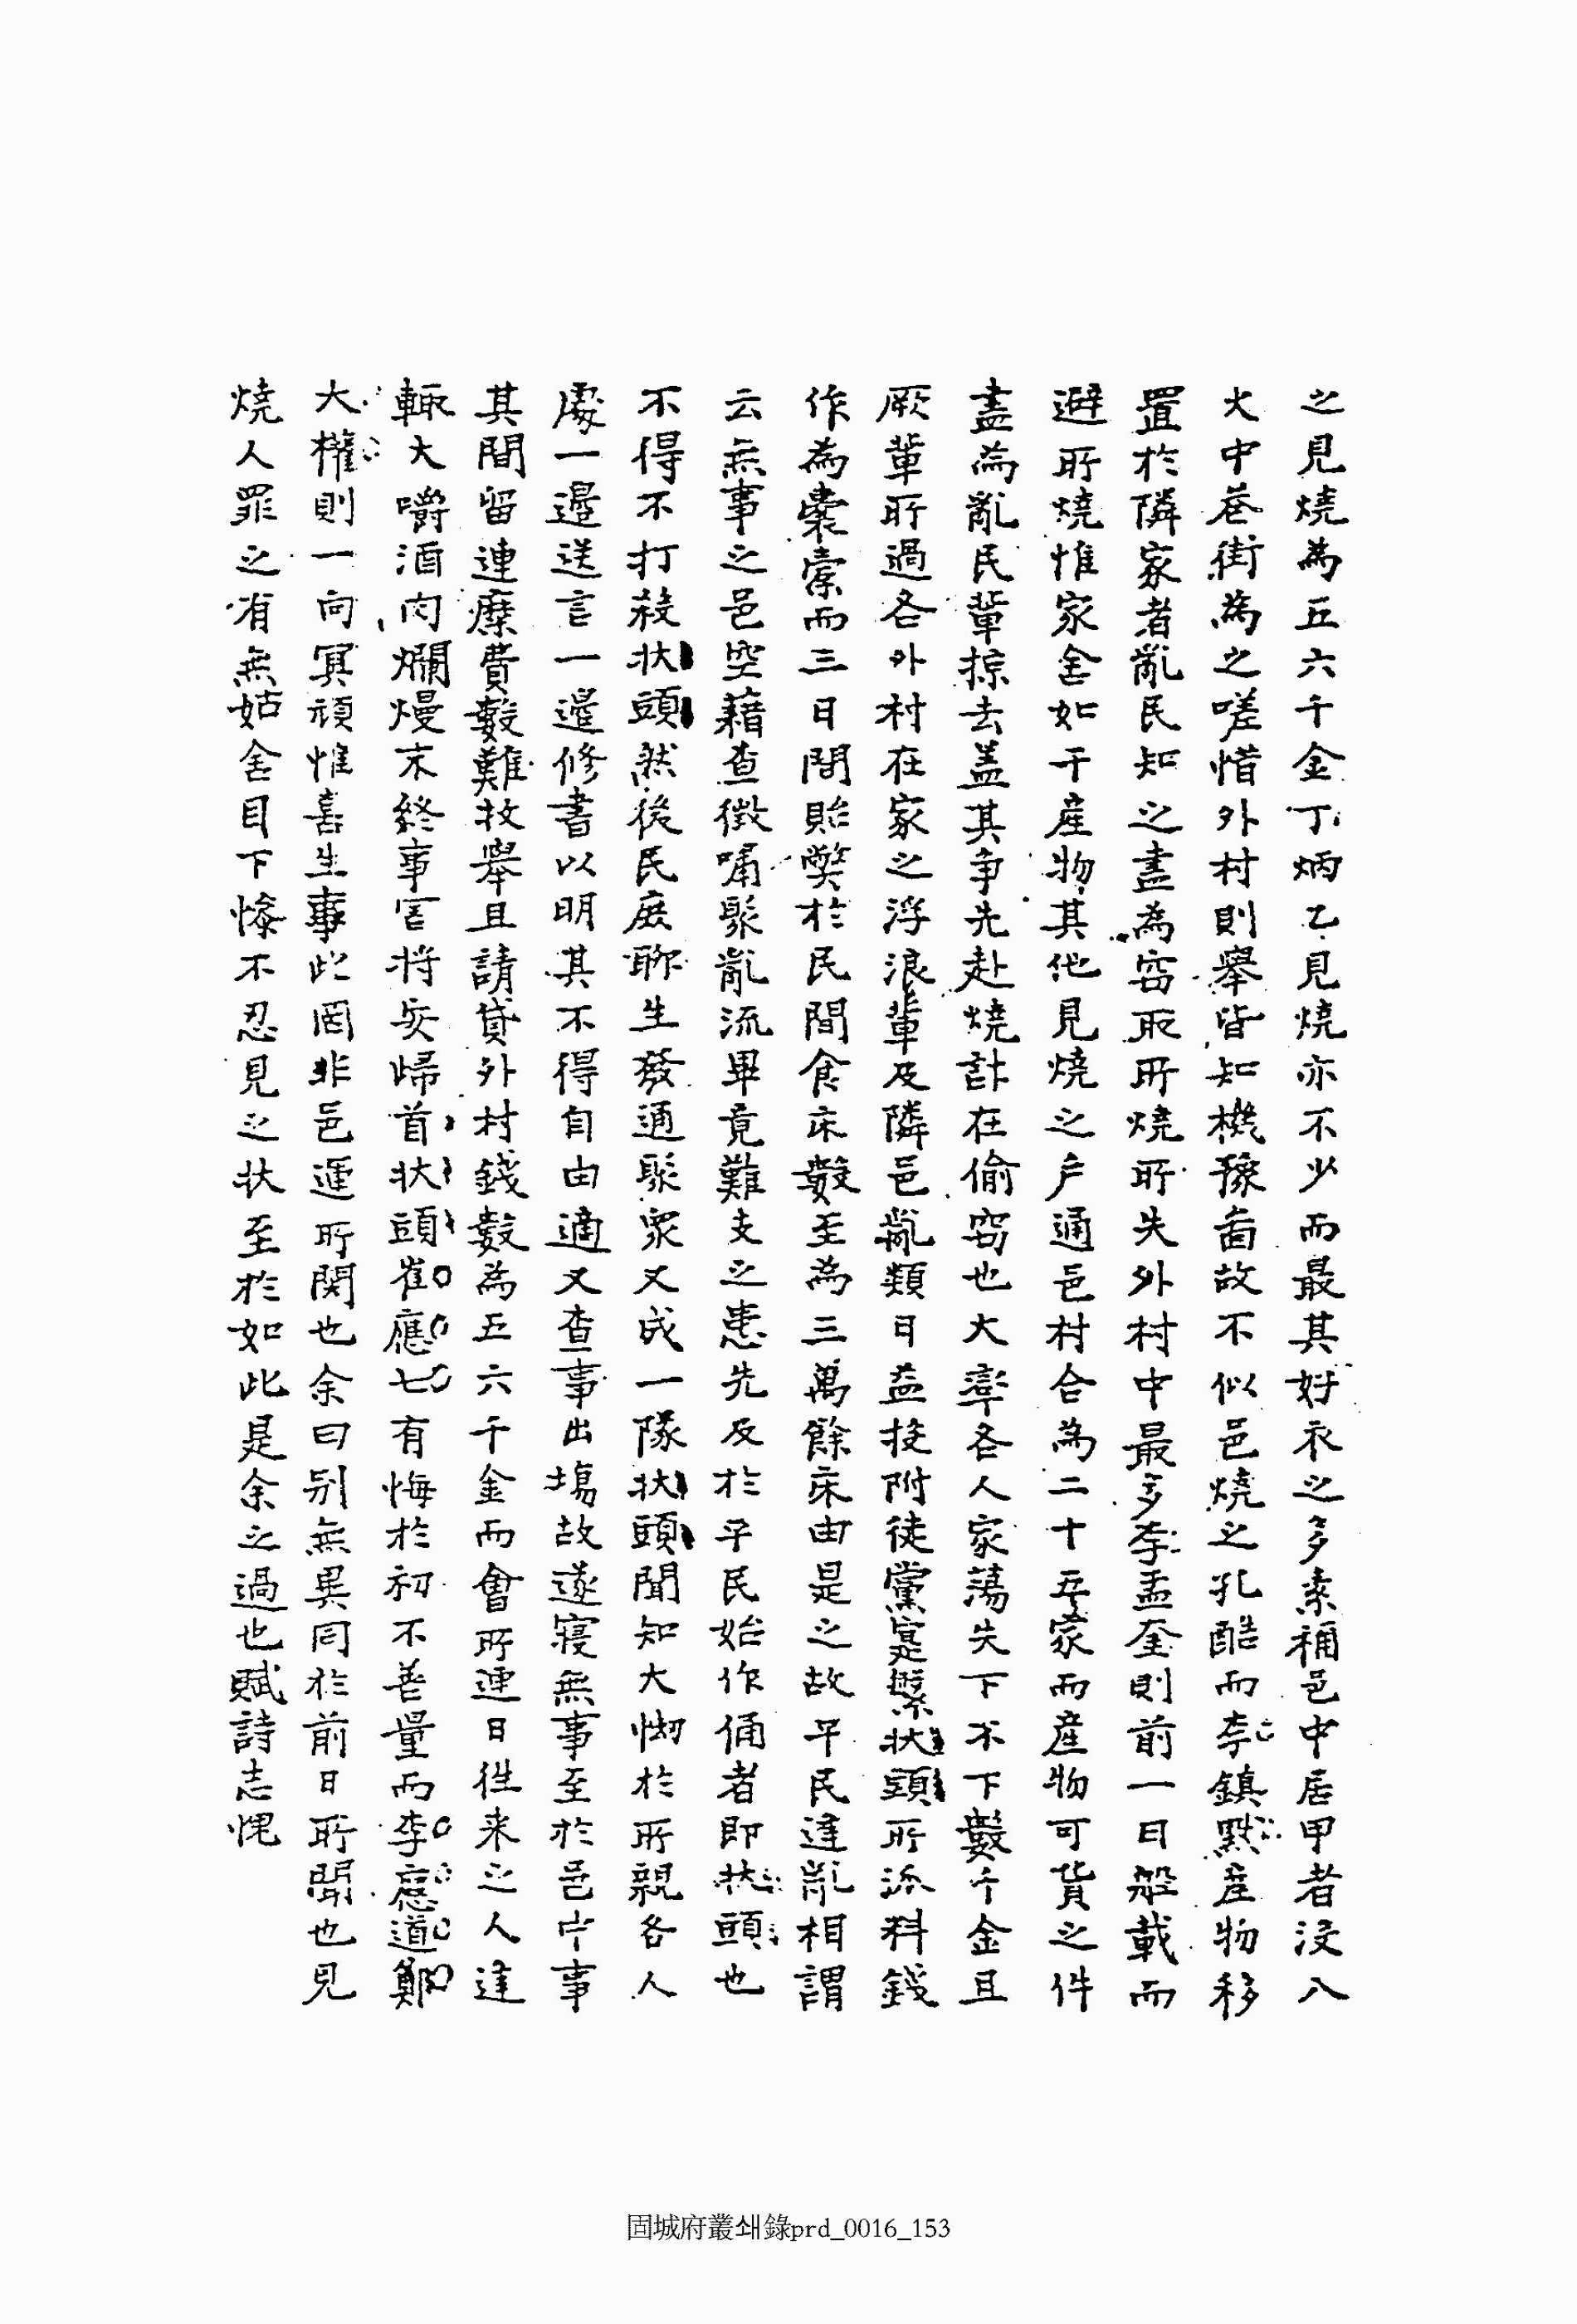 之見燒爲五六千金丁炳乙見燒亦不少而最其好衣之多素稱邑中居甲者沒入
火中巷街爲之嗟惜外村則擧皆知機豫畓故不似邑燒之孔酷而李鎭默産物移
置於隣家者亂民知之盡爲窃取所燒所失外村中最多李孟奎則前一日船載而
避所燒惟家舍如干産物其他見燒之戶通邑村合爲二十五家而産物可貨之件
盡爲亂民輩掠去盖其爭先赴燒計在偷窃也大率各人家蕩失下不下數千金且
厥輩所過各外村在家之浮浪輩及隣邑亂類日益投附徒黨寔繁狀頭所派料錢
作爲囊橐而三日間貽弊於民間食床數至爲三萬餘床由是之故平民逢亂相謂
云無事之邑空藉査徵嘯聚亂流畢竟難支之患先及於平民始作俑者卽狀頭也
不得不打殺狀頭然後民庶聊生發通聚衆又成一隊狀頭聞知大㤼於所親各人
處一邊送言一邊修書以明其不得自由適又査事出塲故遂寢無事至於邑中事
其間留連糜費數難枚擧且請貸外村錢數爲五六千金而會所連日徃来之人逢
輒大嚼酒肉爛熳末終事害將安歸首狀頭崔應七有悔於初不善量而李應道鄭
大權則一向冥頑惟喜生事此固非邑運所関也余曰別無異同於前日所聞也見
燒人罪之有無姑舍目下慘不忍見之狀至於如此是余之過也賦詩志愧
固城府叢쇄錄prd_0016_153